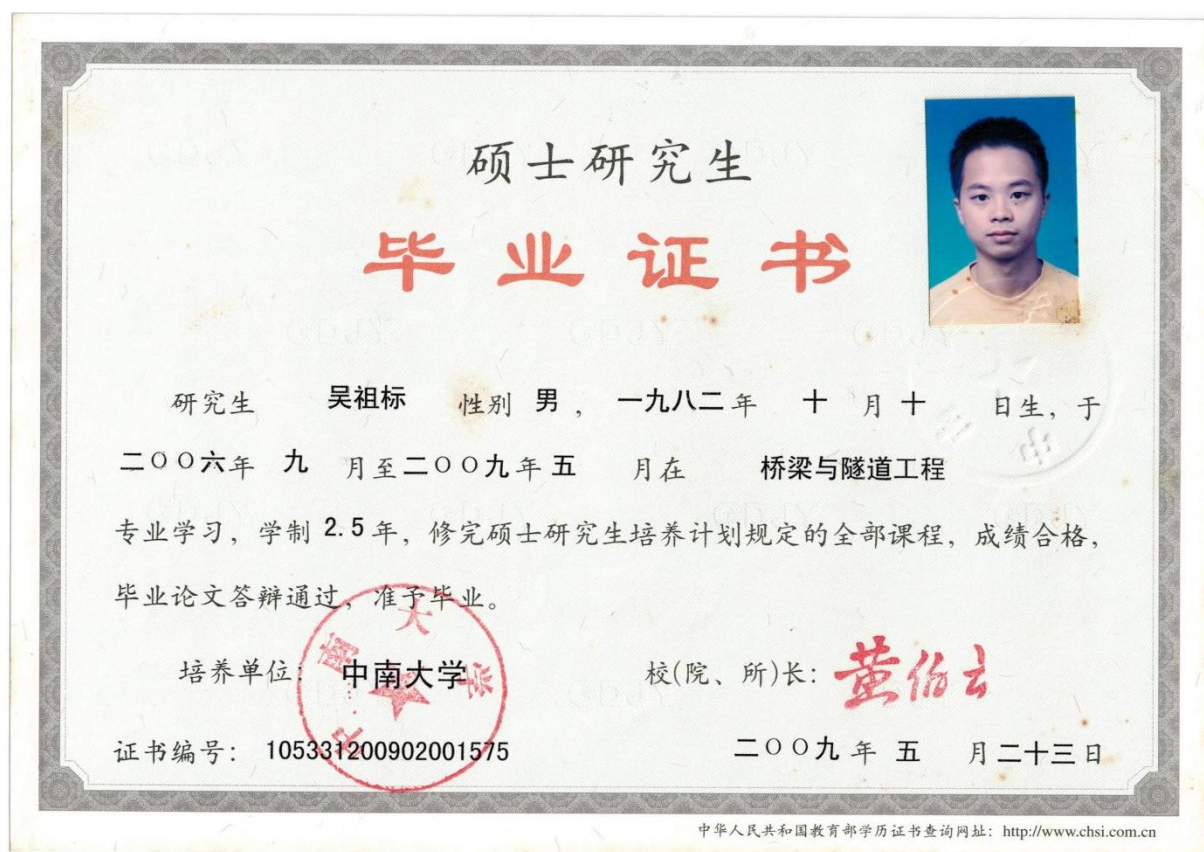 硕士研究生
毕业证书
研究生 吴祖标 性别 男 ， 一九八二 年 十 月 十 日生，于
二〇〇六年 九 月至二〇〇九年 五 月在 桥梁与隧道工程
专业学习，学制 2.5 年，修完硕士研究生培养计划规定的全部课程，成绩合格，
毕业论文答辩通过，准予毕业。
中南大学
培养单位： 中南大学 校(院、所)长： 黄伯云
证书编号： 105331200902001575 二〇〇九 年 五 月 二十三 日
中华人民共和国教育部学历证书查询网址：http://www.chsi.com.cn